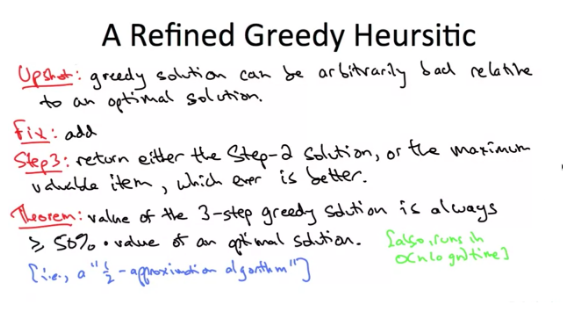 A Refined Greedy Heursitic
Upshot: greedy solution can be arbitrarily bad relative
to an optimal solution.
Fix: add
Step3: return either the Step-2 solution, or the maximum
valuable item, which ever is better.
Theorem: value of the 3-step greedy solution is always
≥ 50% · value of an optimal solution. [also, runs in
O(n log n) time]
[i.e., a "1/2-approximation algorithm"]